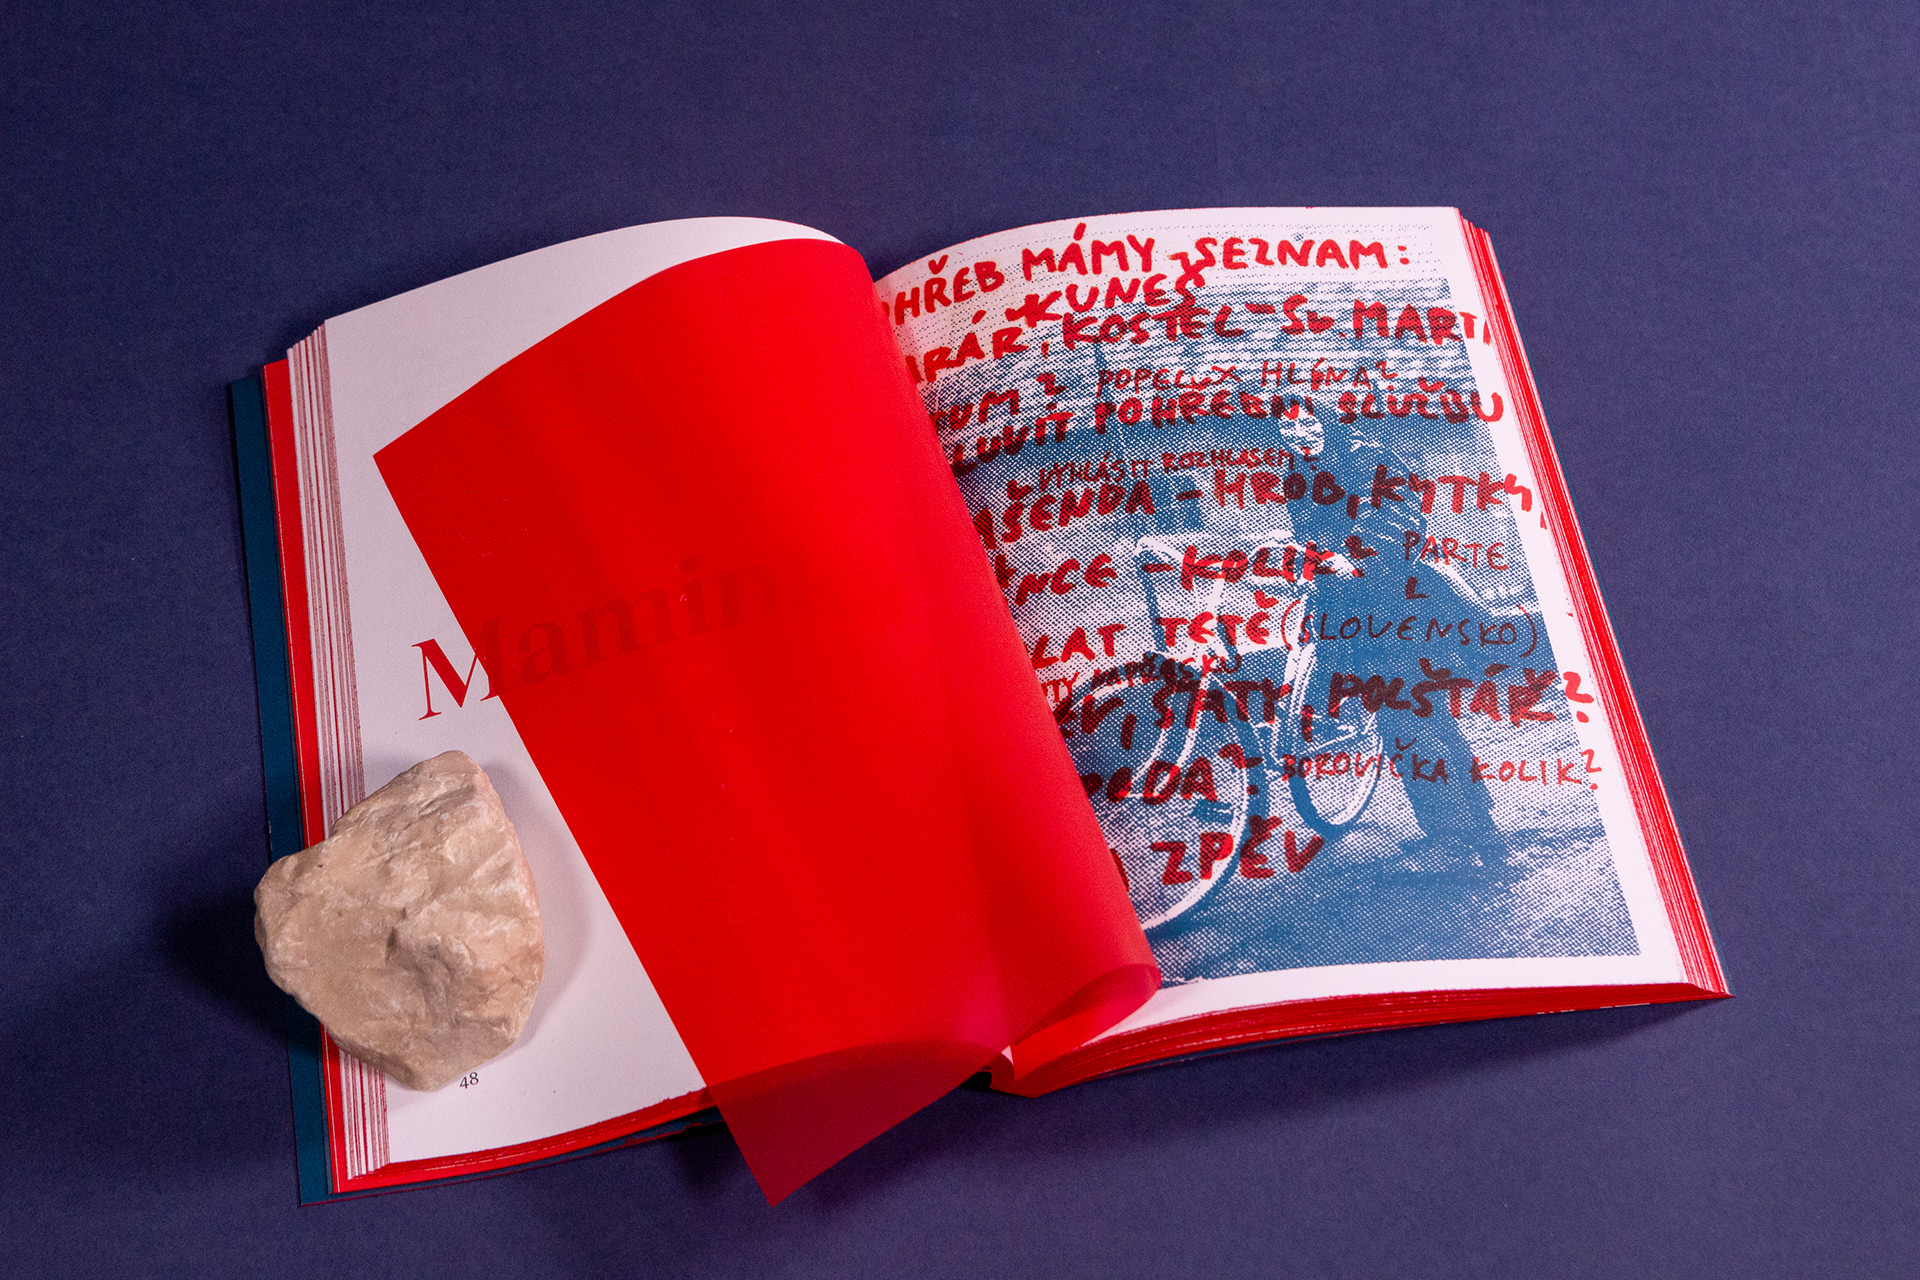 Mamin
48
OHŘEB MÁMY → SEZNAM:
KUNEŠ
ARÁŘ, KOSTEL - SV. MARTI
TUM? POPEL X HLÍNA?
LUVIT POHŘEBNÍ SLUŽBU
↳ VYHLÁSIT ROZHLASEM?
ASENDA - HROB, KYTKY,
ĚNCE - KOLIK? PARTE
LAT TETĚ (SLOVENSKO)
EV, ŠATY, POLŠTÁŘ?
PODA? BOROVIČKA KOLIK?
ZPĚV